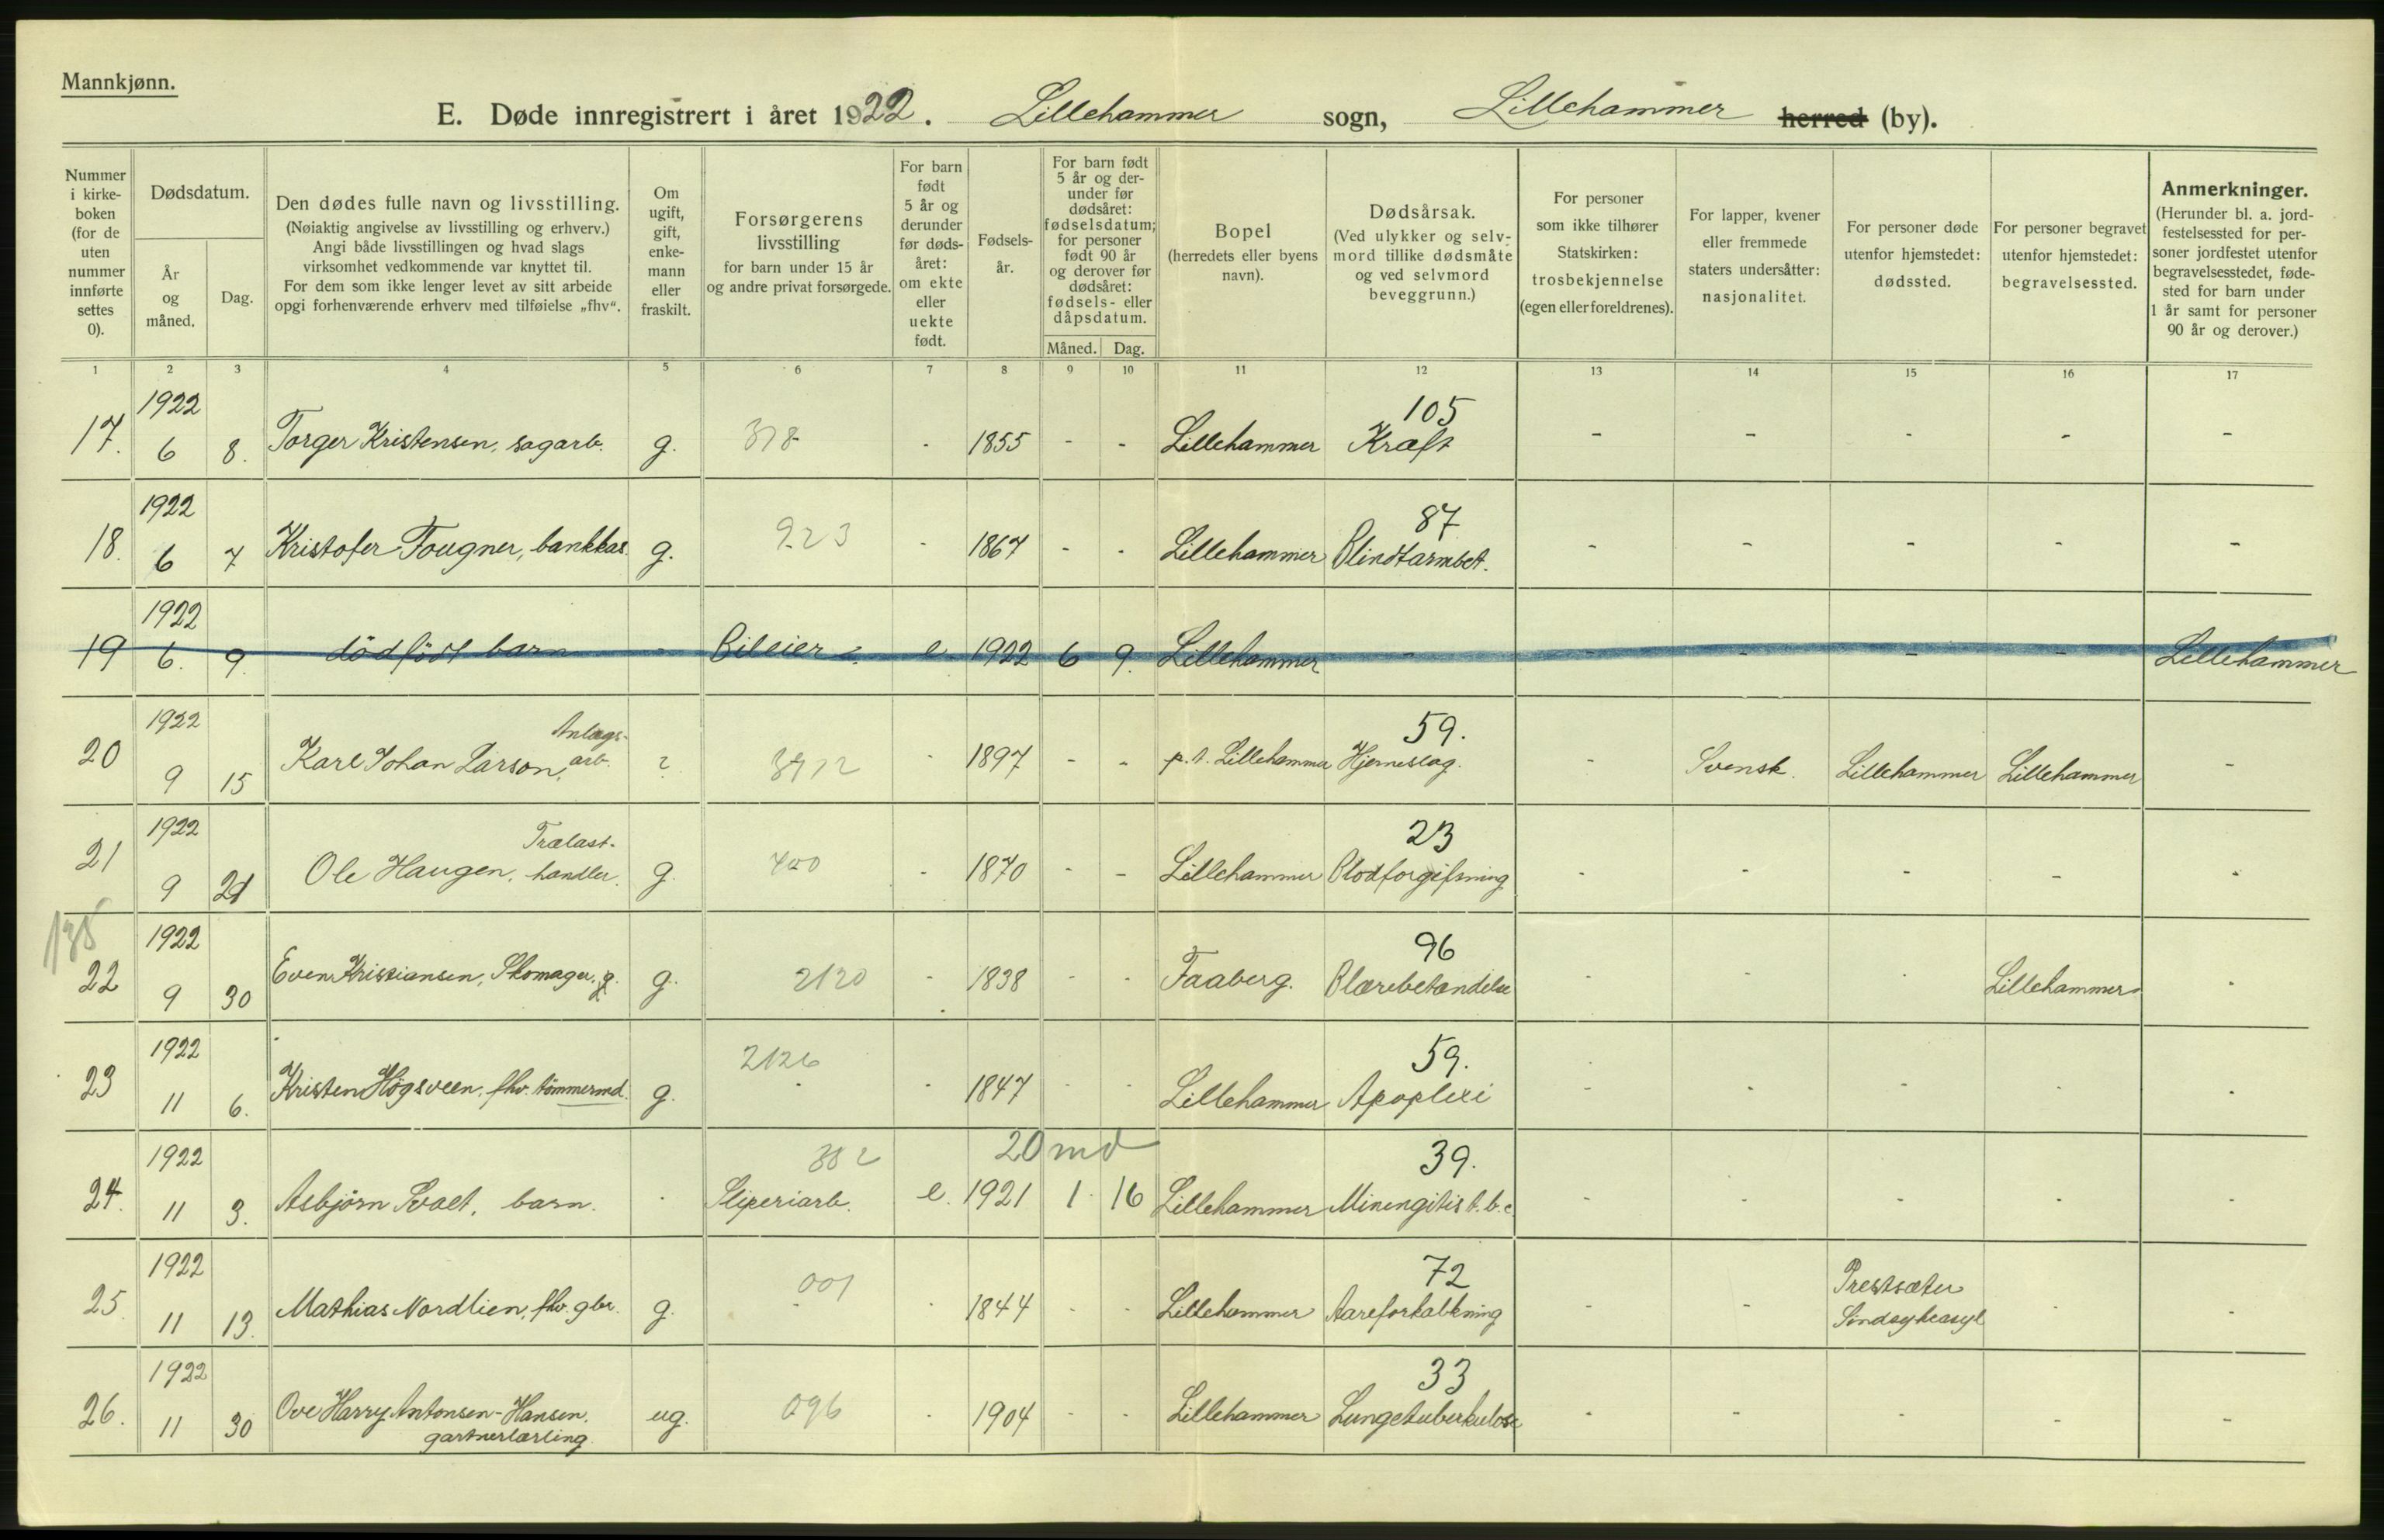 Mannkjønn.
E. Døde innregistrert i året 1922. Lillehammer sogn, Lillehammer herred (by).
Nummer i kirke- boken (for de uten nummer innførte settes 0).
Dødsdatum.
År og måned.
Dag.
Den dødes fulle navn og livsstilling.
(Nøiaktig angivelse av livsstilling og erhverv.)
Angi både livsstillingen og hvad slags
virksomhet vedkommende var knyttet til.
For dem som ikke lenger levet av sitt arbeide
opgi forhenværende erhverv med tilføielse „fhv“.
Om ugift, gift, enke- mann eller fraskilt.
Forsørgerens
livsstilling
for barn under 15 år
og andre privat forsørgede.
For barn født 5 år og derunder før døds- året: om ekte eller uekte født.
Fødsels- år.
For barn født 5 år og der- under før dødsåret: fødselsdatum; for personer født 90 år og derover før dødsåret: fødsels- eller dåpsdatum.
Måned. Dag.
Bopel
(herredets eller byens
navn).
Dødsårsak.
(Ved ulykker og selv-
mord tillike dødsmåte
og ved selvmord
beveggrunn.)
For personer
som ikke tilhører
Statskirken:
trosbekjennelse
(egen eller foreldrenes).
For lapper, kvener
eller fremmede
staters undersåtter:
nasjonalitet.
For personer døde
utenfor hjemstedet:
dødssted.
For personer begravet
utenfor hjemstedet:
begravelsessted.
Anmerkninger.
(Herunder bl. a. jord-
festelsessted for per-
soner jordfestet utenfor
begravelsesstedet, føde-
sted for barn under
1 år samt for personer
90 år og derover.)
1 2 3 4 5 6 7 8 9 10 11 12 13 14 15 16 17
1922 105
17. 6 8. Torger Kristensen, sagarb. g. 378 - 1855 - - Lillehammer Kræft - - - - -
1922 87
18. 6 7 Kristofer Fougner, bankkas. g. 923 - 1867 - - Lillehammer Blindtarmbet. - - - - -
1922
19 6. 9. dödfödt barn - Bileier e. 1922 6 9. Lillehammer - - - - - Lillehammer
1922 Anlægs- 59.
20 9 15 Karl Johan Larson, arb. ? 3912 - 1897 - - p.t. Lillehammer Hjerneslag. - Svensk. Lillehammer Lillehammer -
1922 Trælast- 23
21 9 21 Ole Haugen, handler. g. 400 - 1870 - - Lillehammer Blodforgiftning - - - - -
135
1922 96
22 9 30 Even Kristiansen, Skomager, g. g. 2120 - 1838 - - Faaberg. Blærebetændelse - - - Lillehammer -
1922 2126 59.
23 11 6. Kristen Högsveen, fhv. tömmermd. g. - - 1847 - - Lillehammer Apoplexi - - - - -
1922 382 20 md 39.
24. 11 3. Asbjørn Svalt, barn. - Sliperiarb. e. 1921 1. 16 Lillehammer Minengitis t.b.c. - - - - -
1922 001 72 Prestsæter
25 11 13. Mathias Nordlien, fhv. gbr. g. - 1844 - - Lillehammer Aareforkalkning - - Sindsykeasyl - -
1922 33
26. 11 30 Ove Harry Antonsen-Hansen, ug. 096 - 1904 - - Lillehammer Lungetuberkulose - - - - -
gartnerlærling